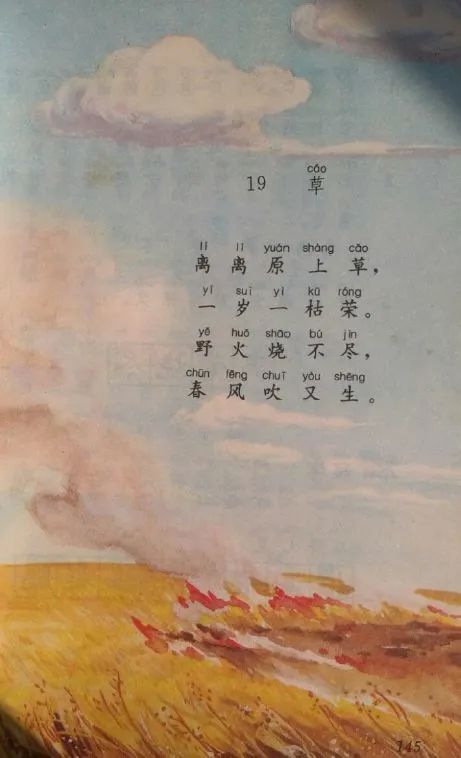 cǎo
19 草
lí lí yuán shàng cǎo
离离原上草，
yí suì yì kū róng
一岁一枯荣。
yě huǒ shāo bú jìn
野火烧不尽，
chūn fēng chuī yòu shēng
春风吹又生。
145